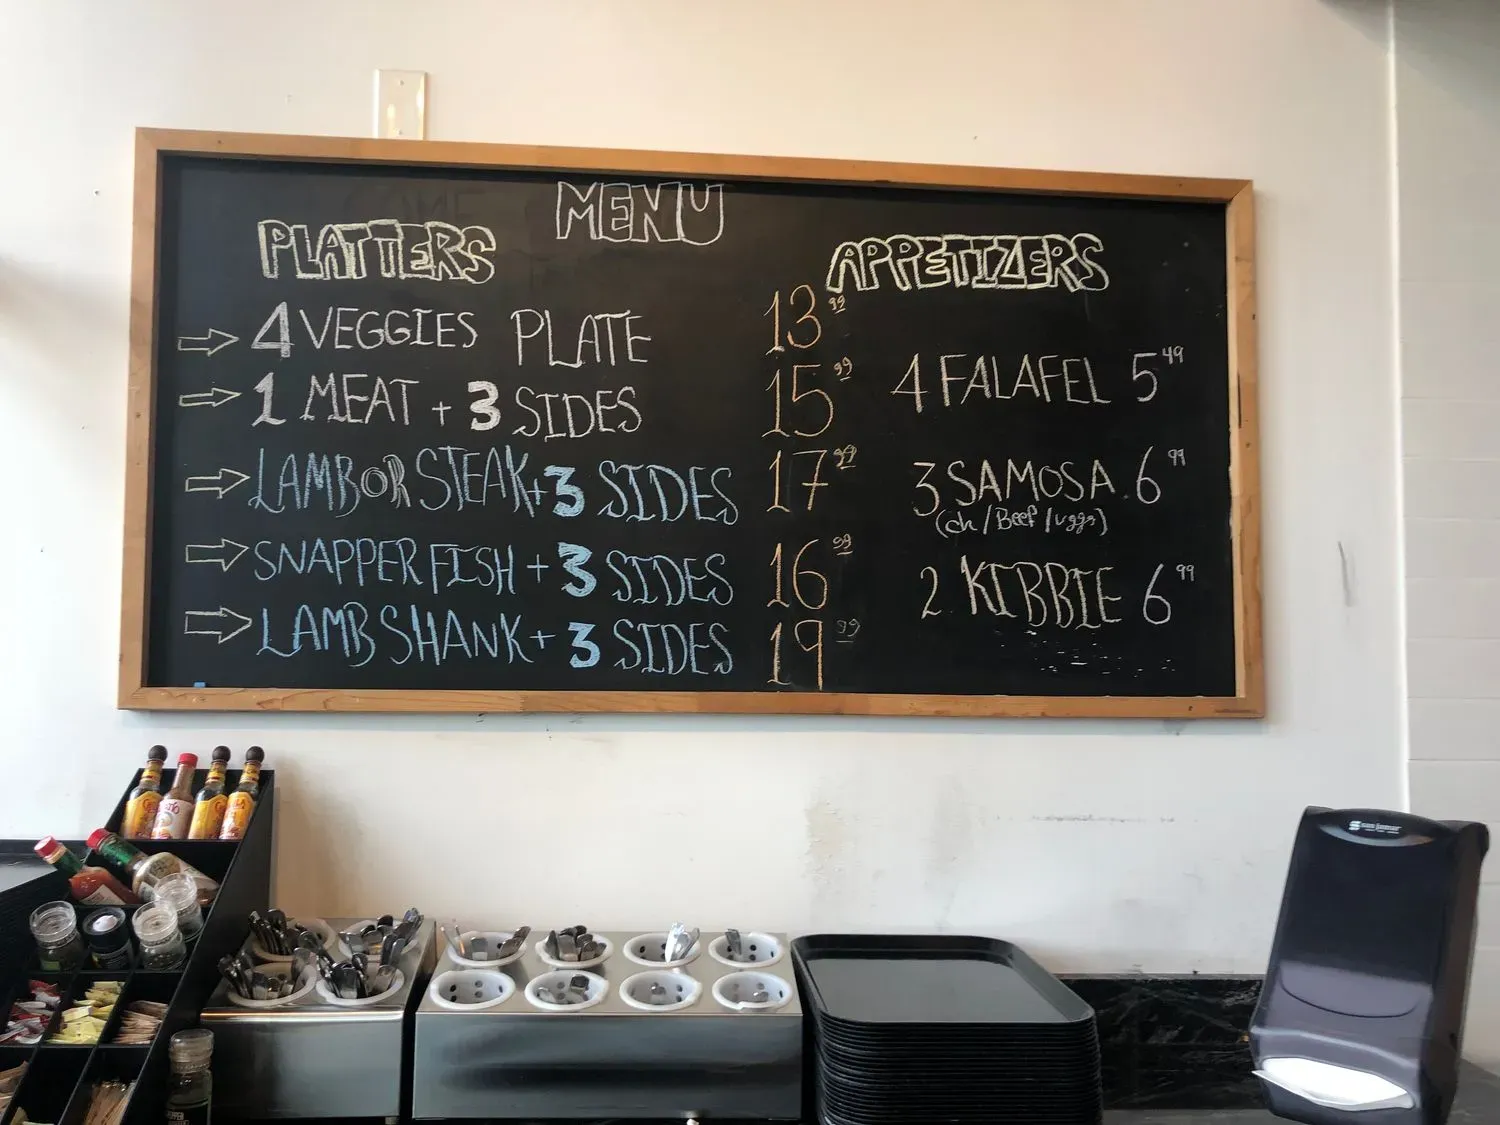 MENU
PLATTERS
4 VEGGIES PLATE 13 99
1 MEAT + 3 SIDES 15 99
LAMB OR STEAK + 3 SIDES 17 99
SNAPPER FISH + 3 SIDES 16 99
LAMB SHANK + 3 SIDES 19 99
APPETIZERS
4 FALAFEL 5 49
3 SAMOSA 6 99
(ch/Beef/vggs)
2 KIBBIE 6 99
san jamar